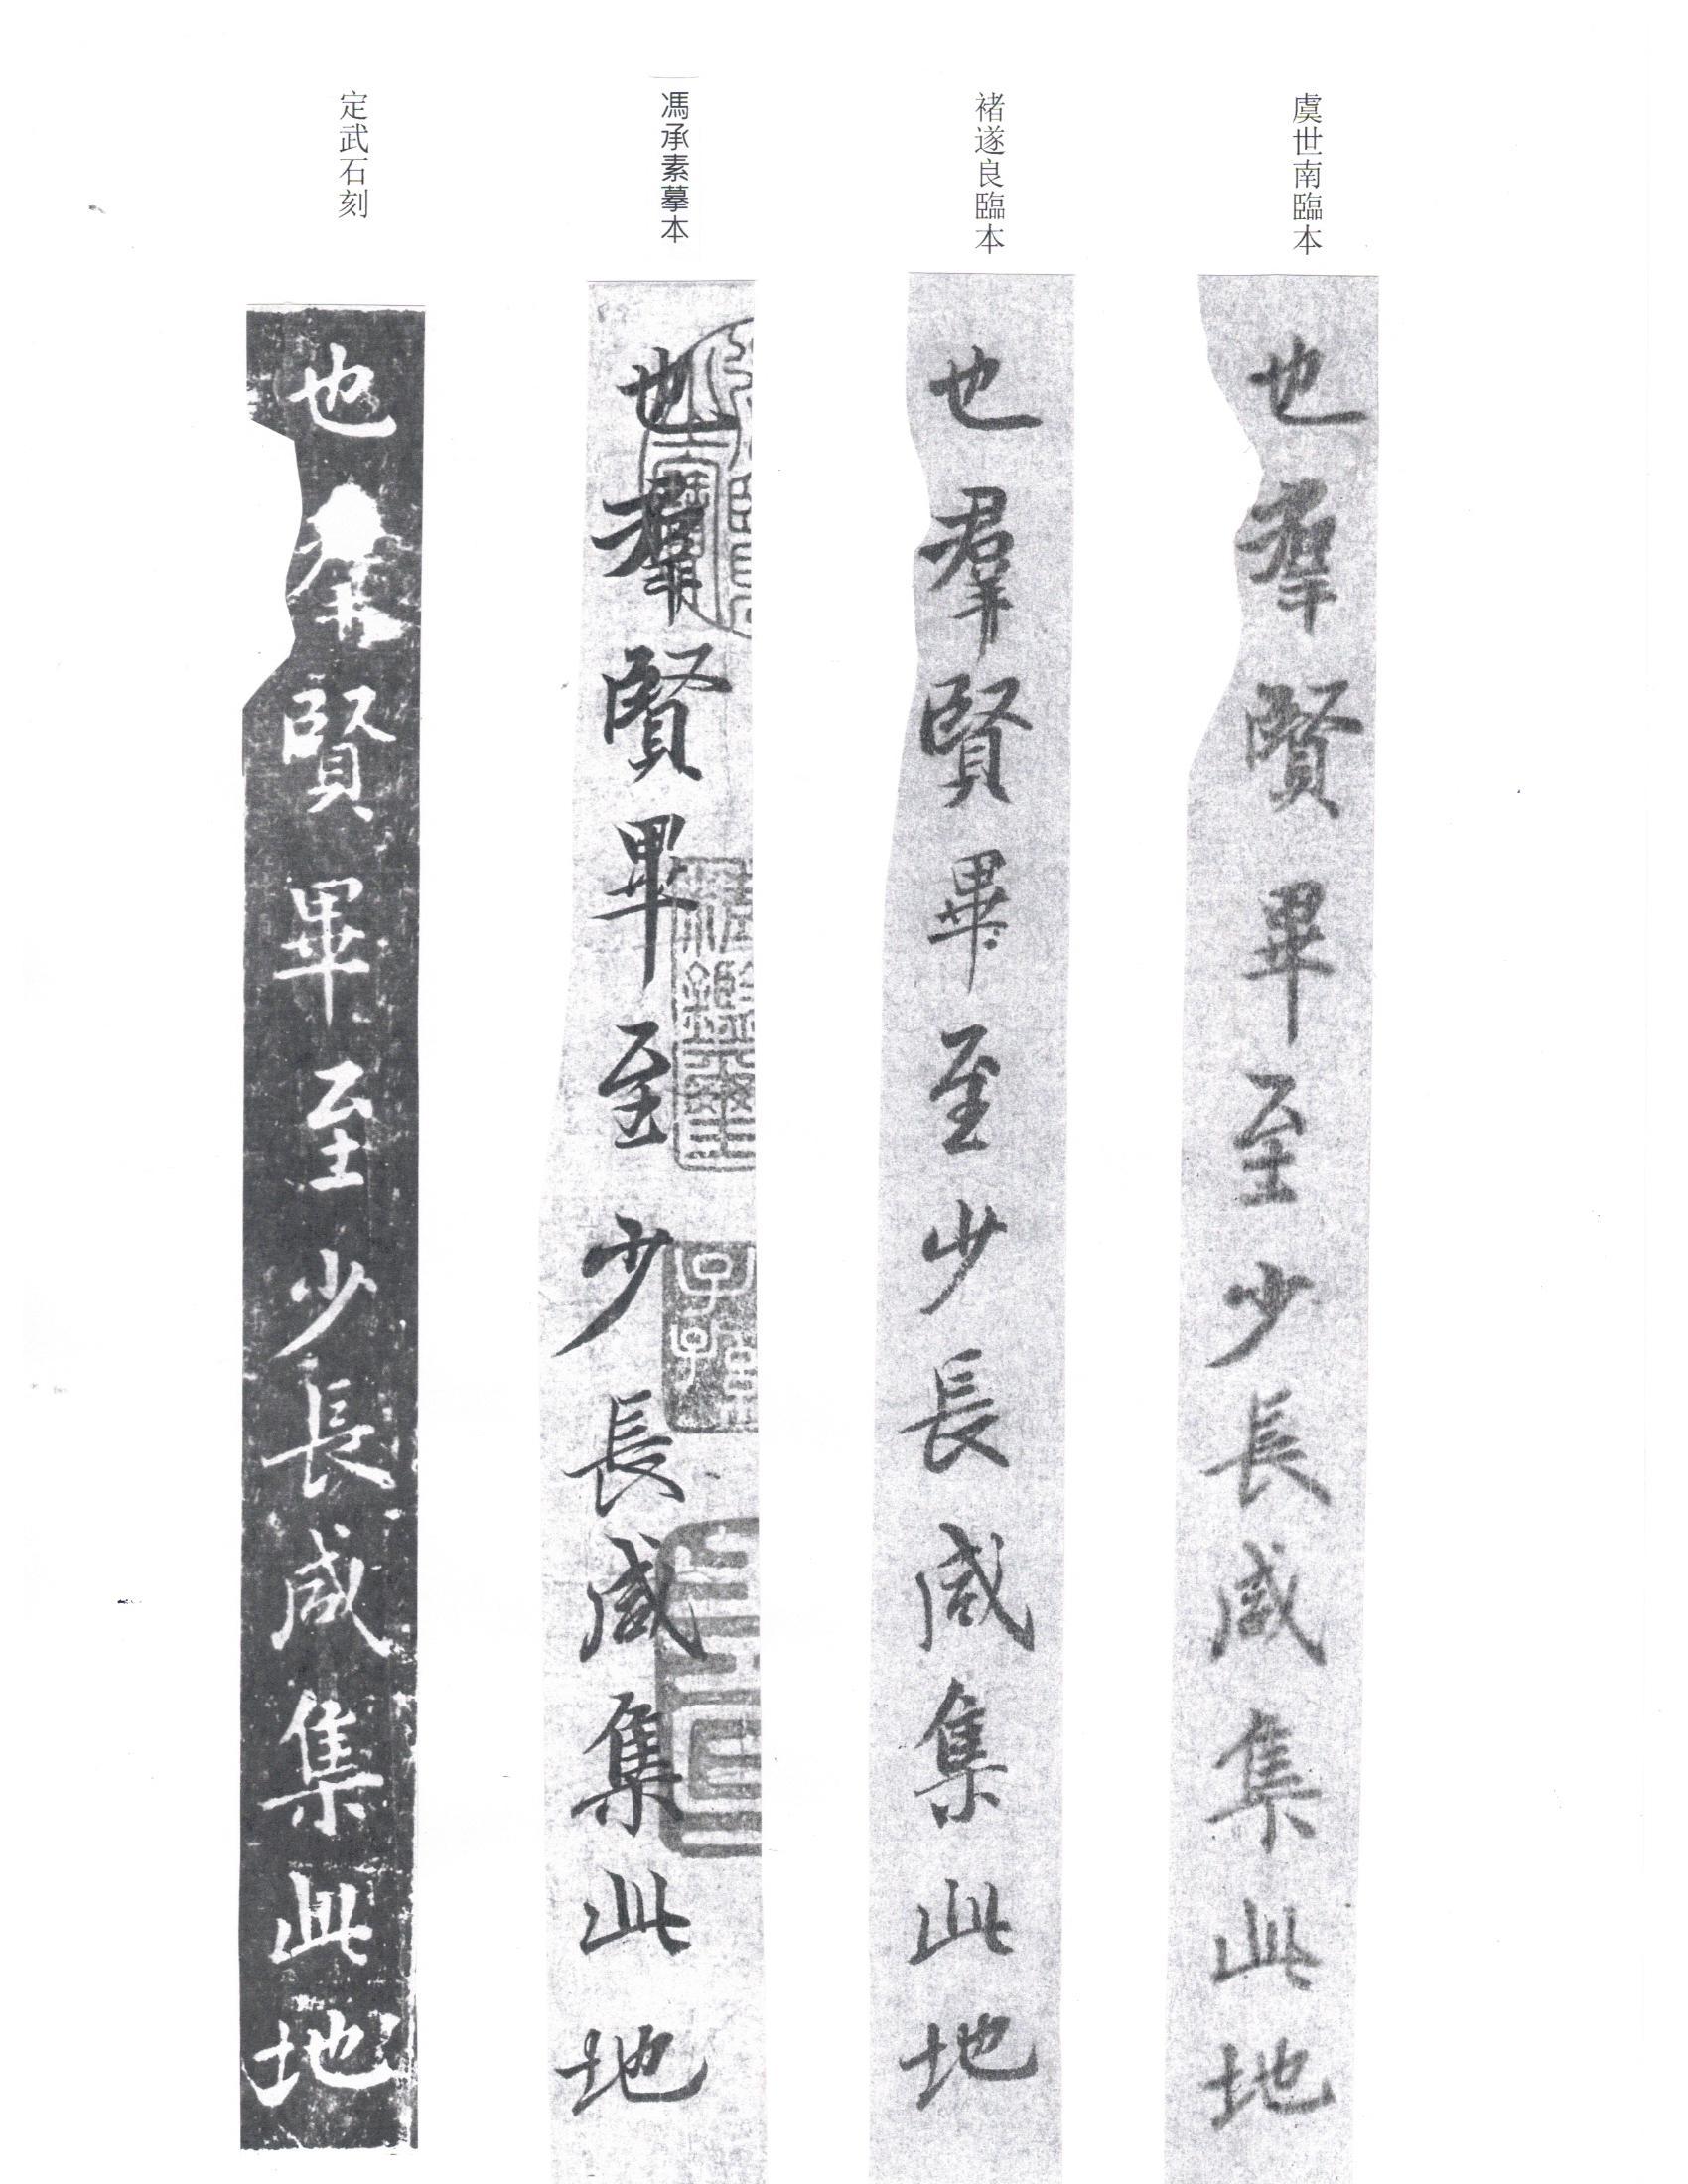 虞世南臨本
也羣賢畢至少長咸集此地
褚遂良臨本
也羣賢畢至少長咸集此地
馮承素摹本
也羣賢畢至少長咸集此地
定武石刻
也羣賢畢至少長咸集此地